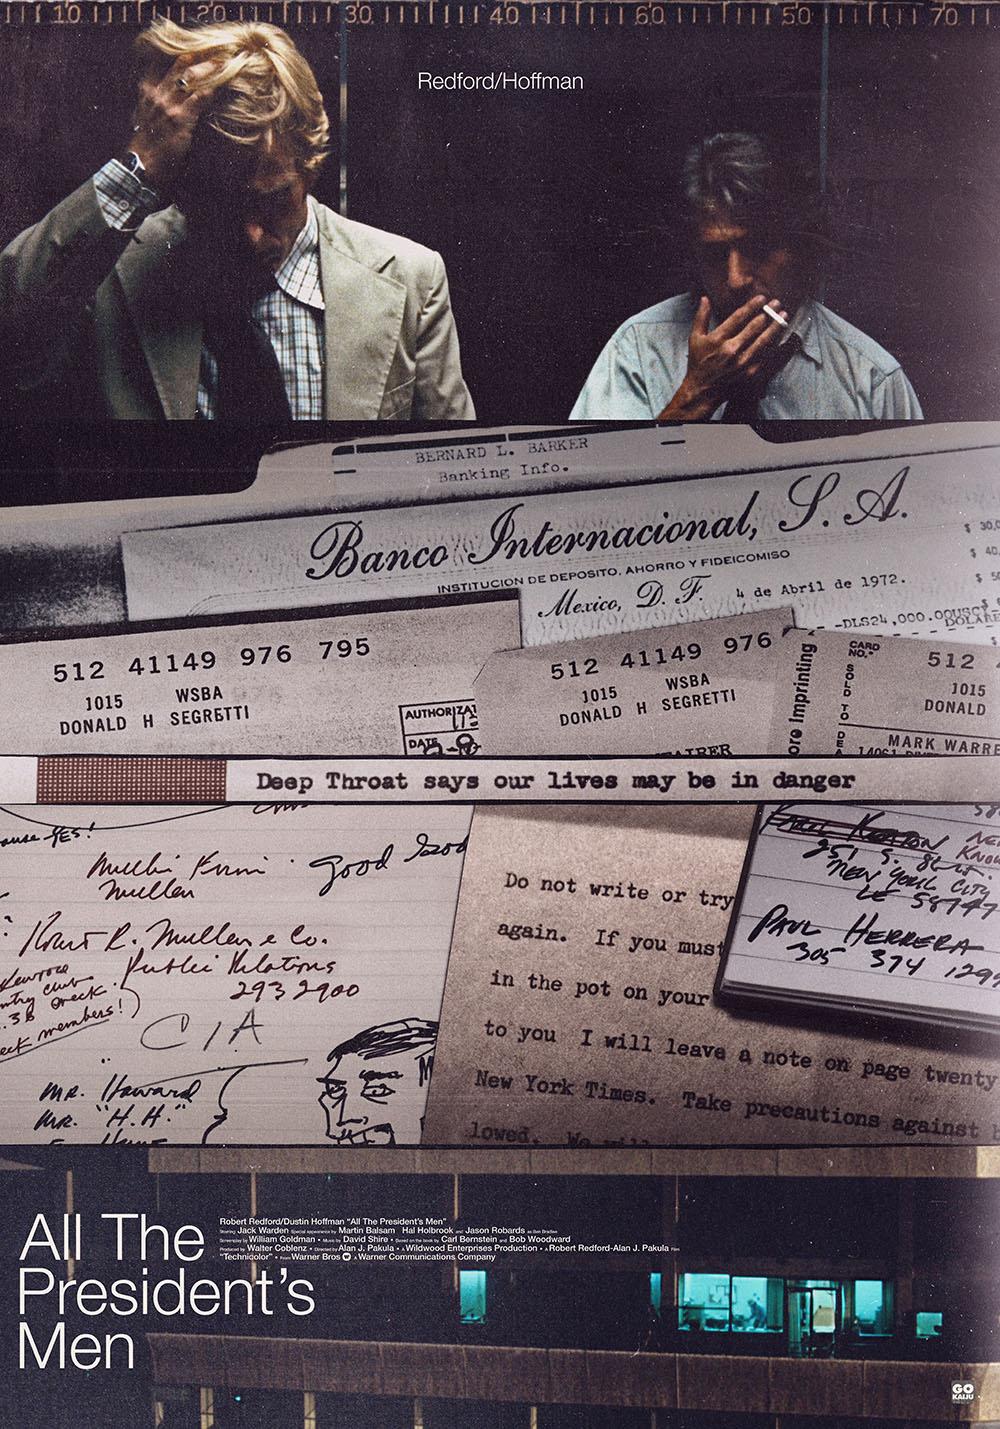 10 20 30 40 60 50 70
Redford/Hoffman
BERNARD L. BARKER
Banking Info.
Banco Internacional, S. A.
INSTITUCION DE DEPOSITO, AHORRO Y FIDEICOMISO
Mexico, D. F. 4 de Abril de 1972.
$ 30,0
$ 40,
$ 50
-DLS24,000.00USCY-
DOLARE
512 41149 976 795
1015 WSBA
DONALD H SEGRETTI
AUTHORIZAT
DATE
512 41149 976
1015 WSBA
DONALD H SEGRETTI
ore Imprinting
CARD NO.
SOLD TO
512 4
1015
DONALD
MARK WARRE
Deep Throat says our lives may be in danger
ause YES!
Good Good
Mullen
Robert R. Mullen & Co.
Public Relations
293 2900
ntry club
check members!
CIA
MR. Howard
MR. "H.H."
Do not write or try
again. If you must
in the pot on your
to you I will leave a note on page twenty
New York Times. Take precautions against
lowed. We will
NEW YORK CITY
PAUL HERRERA
305 374 129
All The
President's
Men
Robert Redford/Dustin Hoffman "All The President's Men"
Starring Jack Warden Special appearance by Martin Balsam Hal Holbrook and Jason Robards as Ben Bradlee
Screenplay by William Goldman • Music by David Shire • Based on the book by Carl Bernstein and Bob Woodward
Produced by Walter Coblenz • Directed by Alan J. Pakula • A Wildwood Enterprises Production • A Robert Redford-Alan J. Pakula Film
"Technicolor" • From Warner Bros A Warner Communications Company
GO
KAIJU